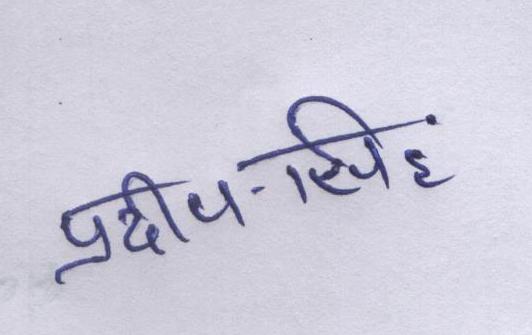 प्रदीप सिंह